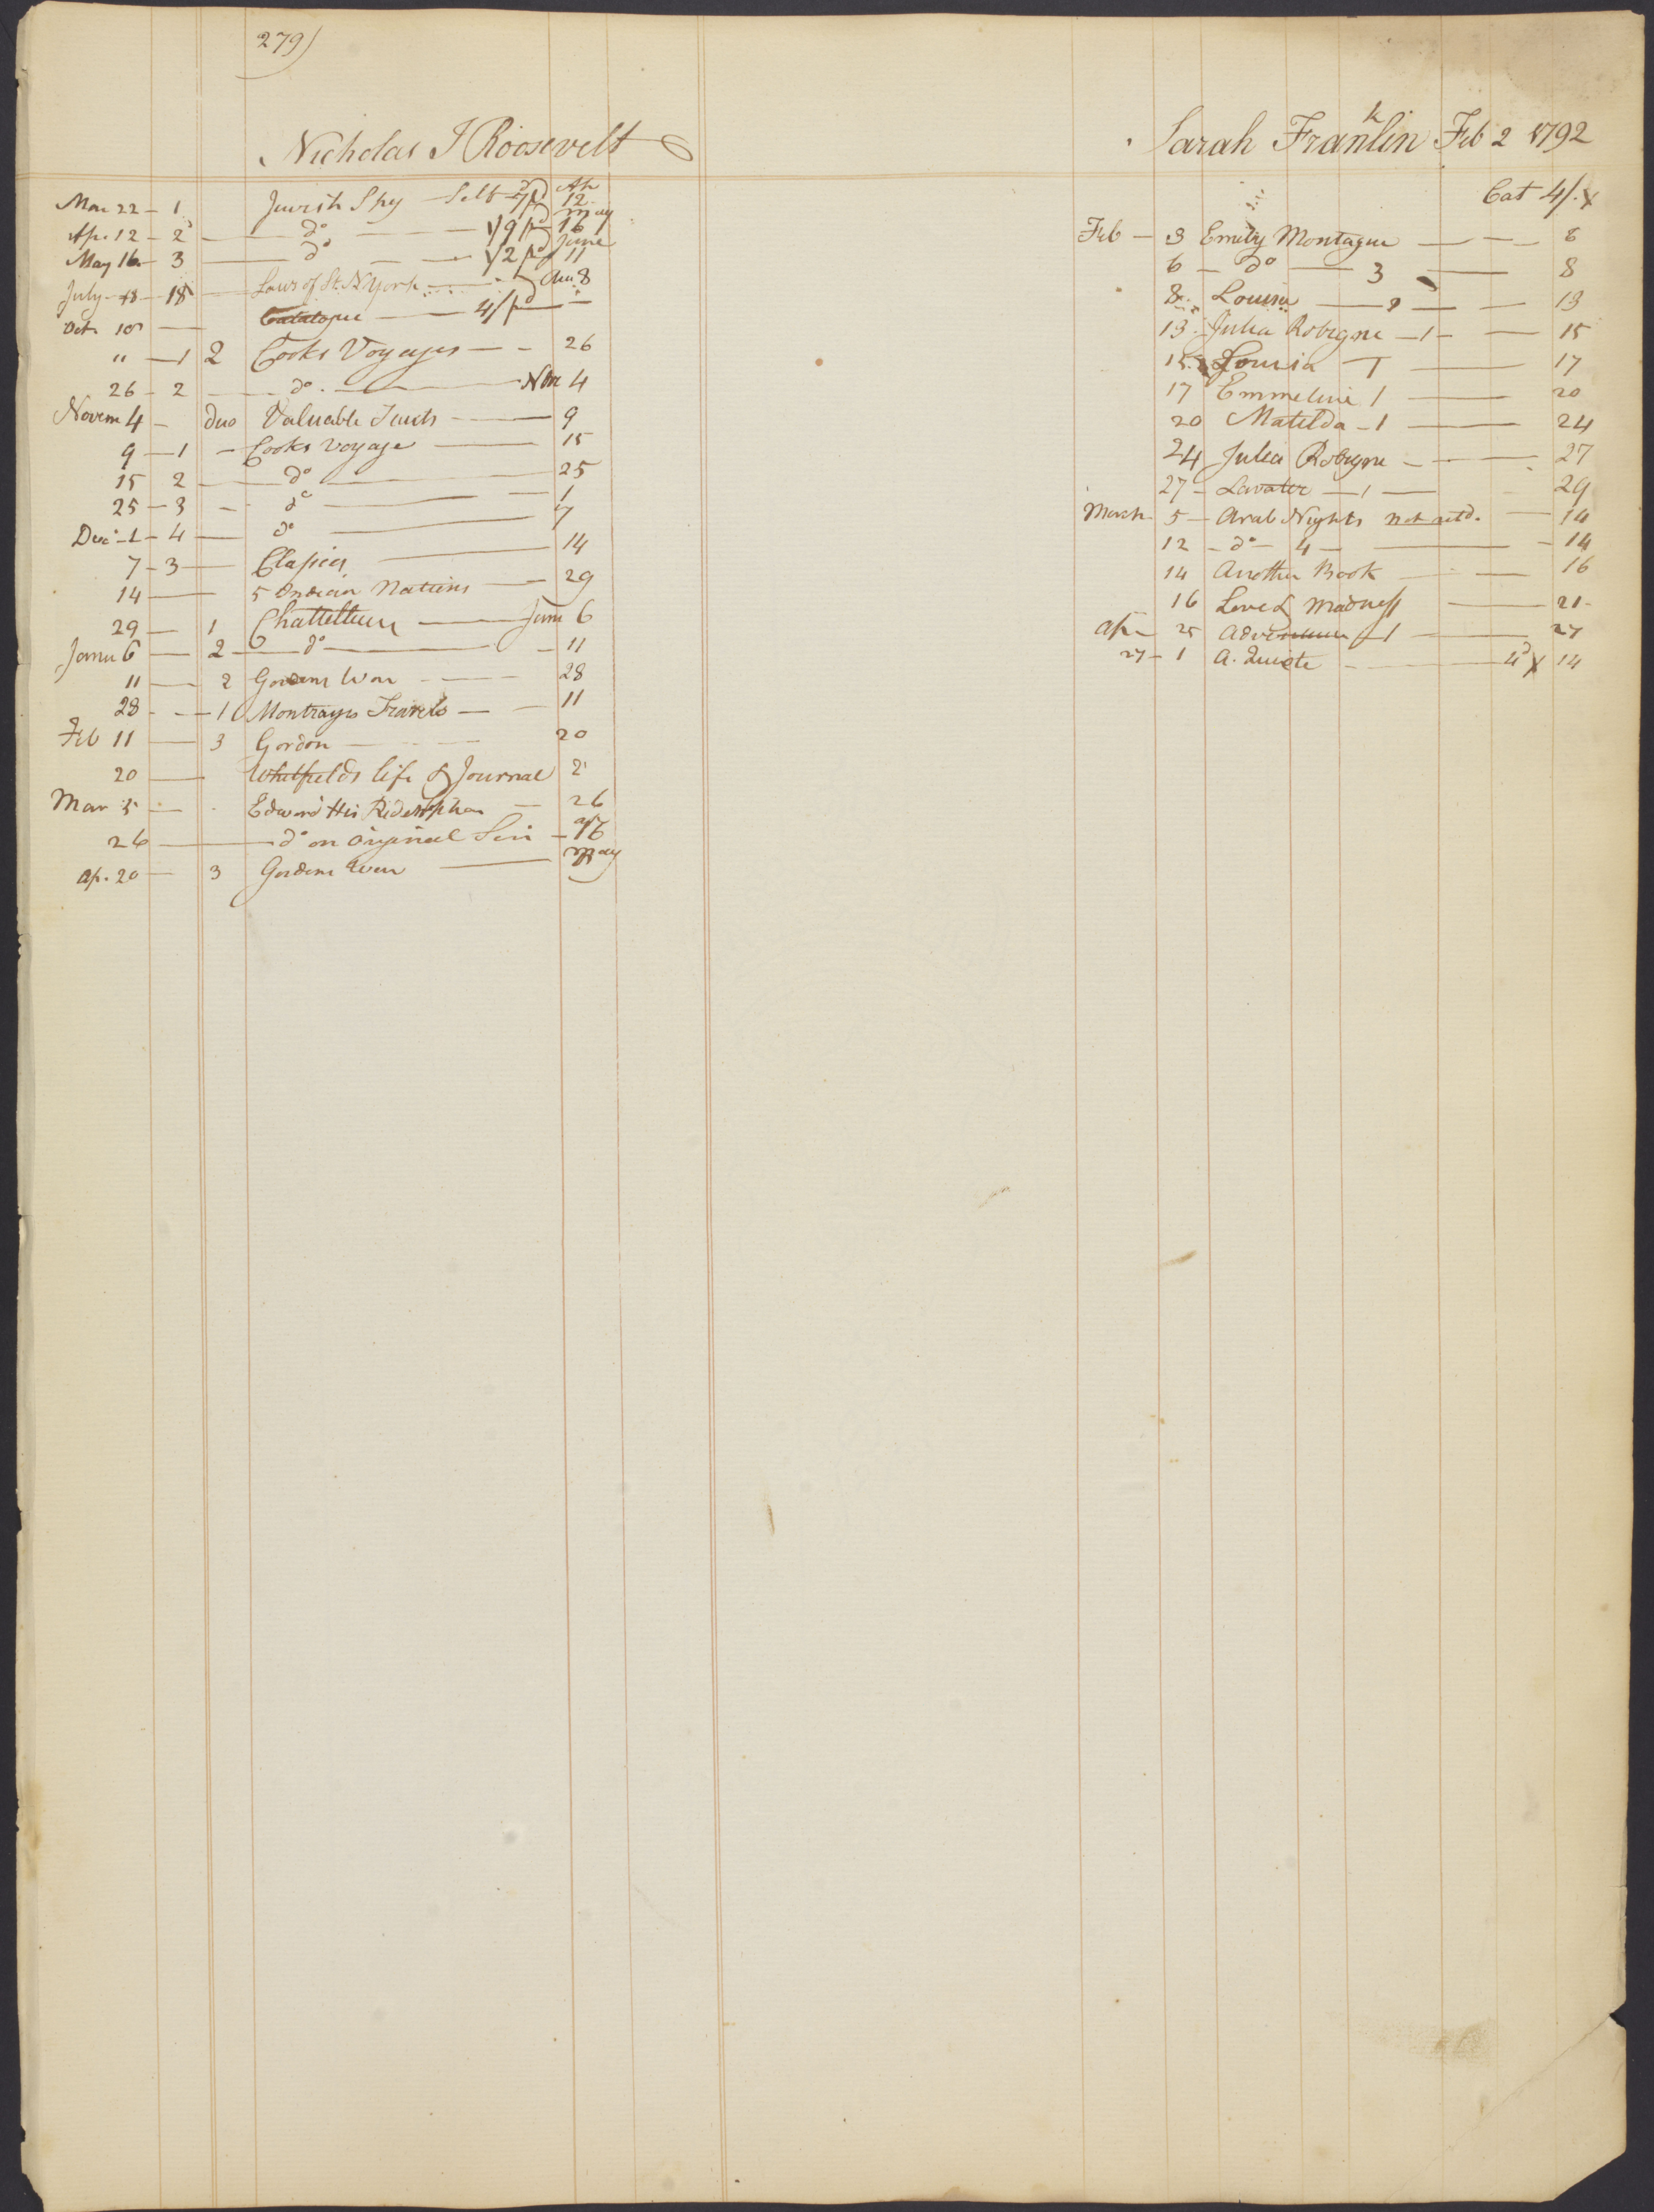 279)
Nicholas J Roosevelt
Mar 22 - 1 Jewish Spy - Self - pd Ap 12
Ap. 12 - 2 - do - 1/9 pd May 16
May 16 - 3 - do - 1/2 pd June 11
July 18 - Laws of St. N York - Au. 8
Oct 10 - Catalogue - 4/ pd -
" - 1 2 Cooks Voyages - 26
26 - 2 - do. - Nov 4
Novem 4 - duo Valuable - 9
9 - 1 - Cooks Voyage - 15
15 2 - do - 25
25 - 3 - do - 1
Dec 1 - 4 - do - 7
7 - 3 - Classics - 14
14 - 5 Indian Nations - 29
29 - 1 - Janu 6
Janu 6 - 2 - do - 11
11 - 2 Gordons War - 28
28 - 1 Travels - 11
Feb 11 - 3 Gordon - 20
20 - Whitfields life & Journal 2
Mar 5 - Edward His Redemption - 26
26 - do on Original Sin - ap
Ap. 20 - 3 Gordons War - May
Sarah Franklin Feb 2 1792
Cat 4/. X
Feb - 3 Emily Montague - 6
6 - do - 3 - 8
8 Louisa - 13
13 Julia Robigne - 1 - 15
15 Louisa - 17
17 Emmeline 1 - 20
20 Matilda - 1 - 24
24 Julia Robigne - 27
27 - Lavater - 1 - 29
March 5 - Arab Nights not retd. - 14
12 - do - 4 - 14
14 Another Book - 16
16 Love & Madness - 21
Ap 25 1 - 27
27 - 1 Quixote - X 14